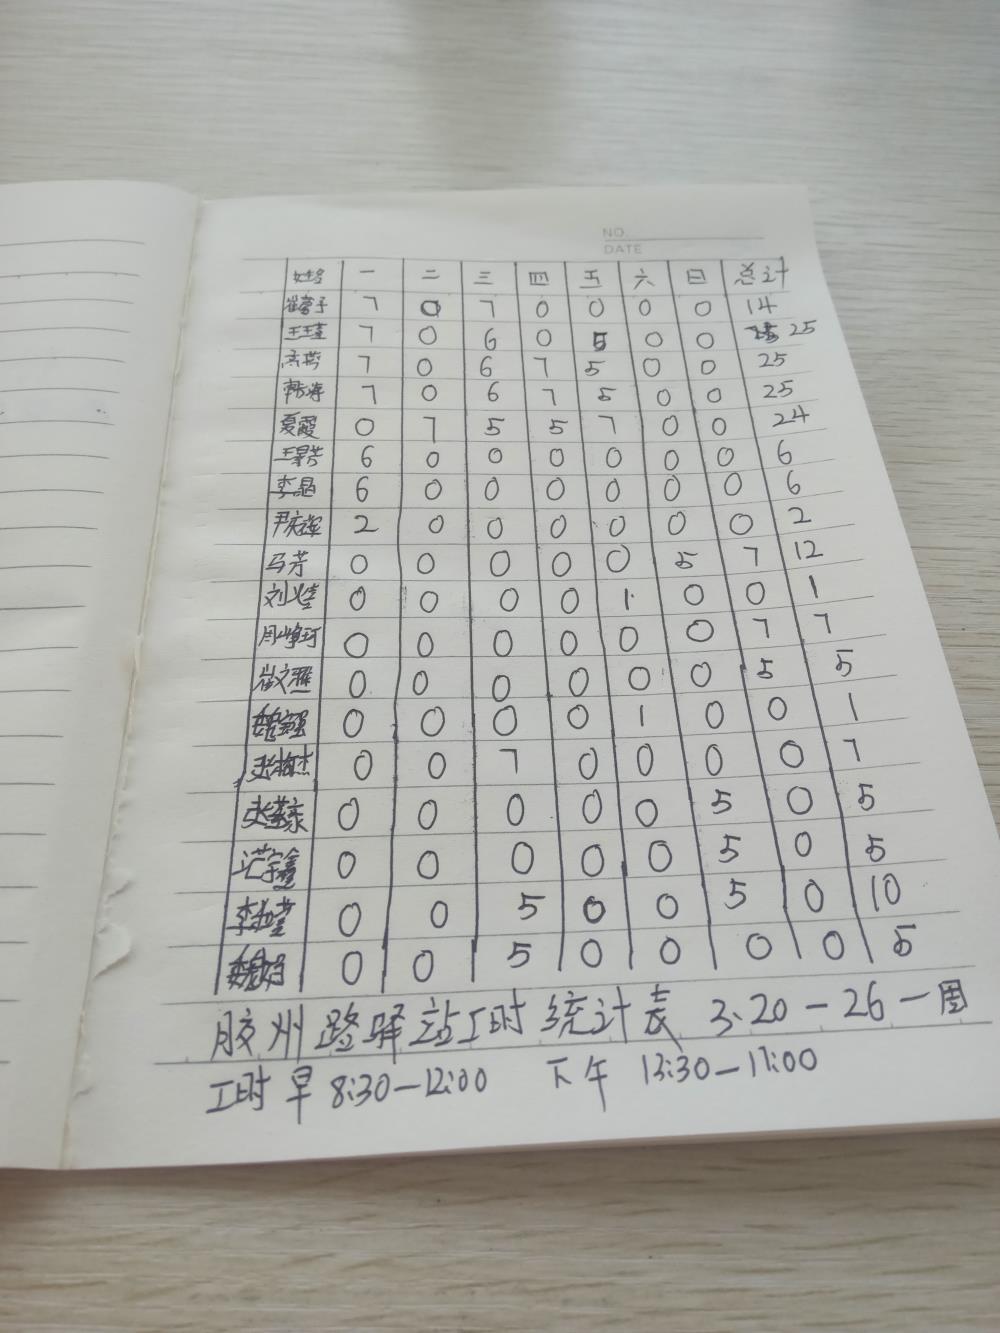 NO.
DATE
姓名 一 二 三 四 五 六 日 总计
7 0 7 0 0 0 0 14
王玉 7 0 6 0 5 0 0 25
高芳 7 0 6 7 5 0 0 25
韩海 7 0 6 7 5 0 0 25
夏霞 0 7 5 5 7 0 0 24
王翠芳 6 0 0 0 0 0 0 6
李晶 6 0 0 0 0 0 0 6
尹庆 2 0 0 0 0 0 0 2
马芳 0 0 0 0 0 5 7 12
刘 0 0 0 0 1 0 0 1
周峰珂 0 0 0 0 0 0 7 7
崔文 0 0 0 0 0 0 5 5
魏 0 0 0 0 1 0 0 1
张梅杰 0 0 7 0 0 0 0 7
0 0 0 0 0 5 0 5
宇鑫 0 0 0 0 0 5 0 5
李 0 0 5 0 0 5 0 10
魏 0 0 5 0 0 0 0 5
胶州路驿站工时统计表 3.20-26一周
工时 早 8:30-12:00 下午 13:30-17:00